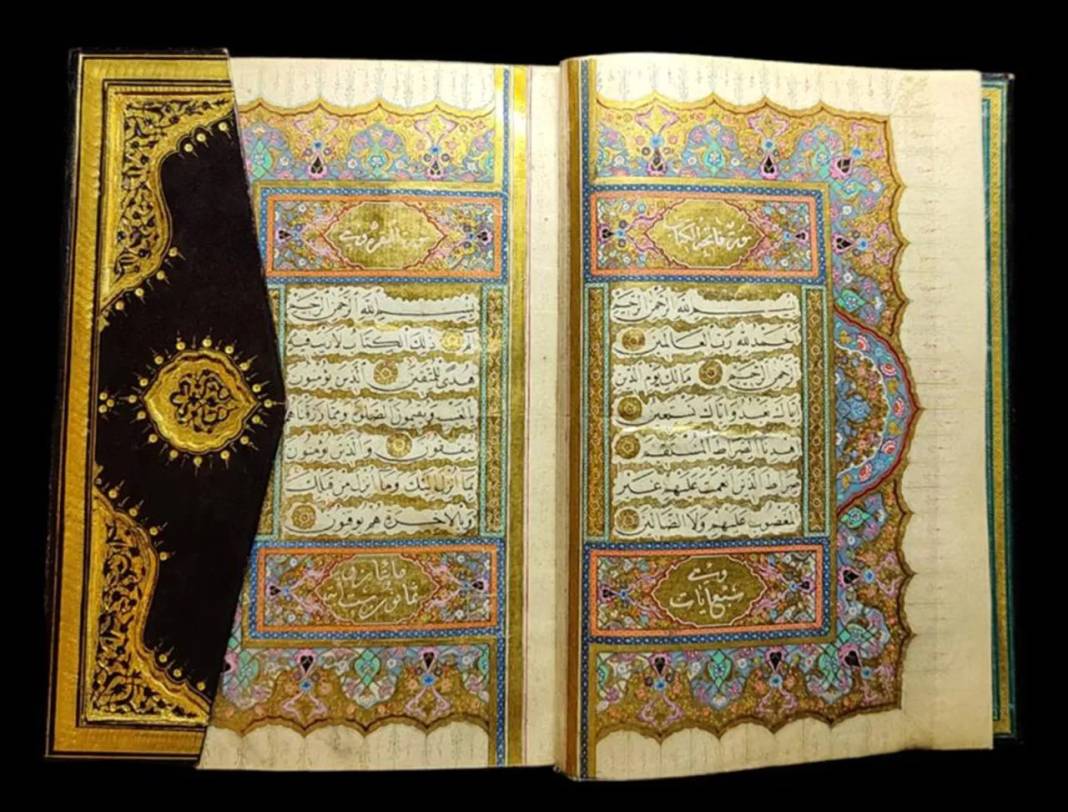 سورة فاتحة الكتاب
بسم الله الرحمن الرحيم
الحمد لله رب العالمين
الرحمن الرحيم مالك يوم الدين
اياك نعبد واياك نستعين
اهدنا الصراط المستقيم
صراط الذين انعمت عليهم غير
المغضوب عليهم ولا الضالين
وهي
سبع ايات
سورة البقرة وهي
بسم الله الرحمن الرحيم
الم ذلك الكتاب لا ريب فيه
هدى للمتقين الذين يؤمنون
بالغيب ويقيمون الصلوة ومما رزقناهم
ينفقون والذين يؤمنون
بما انزل اليك وما انزل من قبلك
وبالاخرة هم يوقنون
مائتان و
ثمانون وست آية